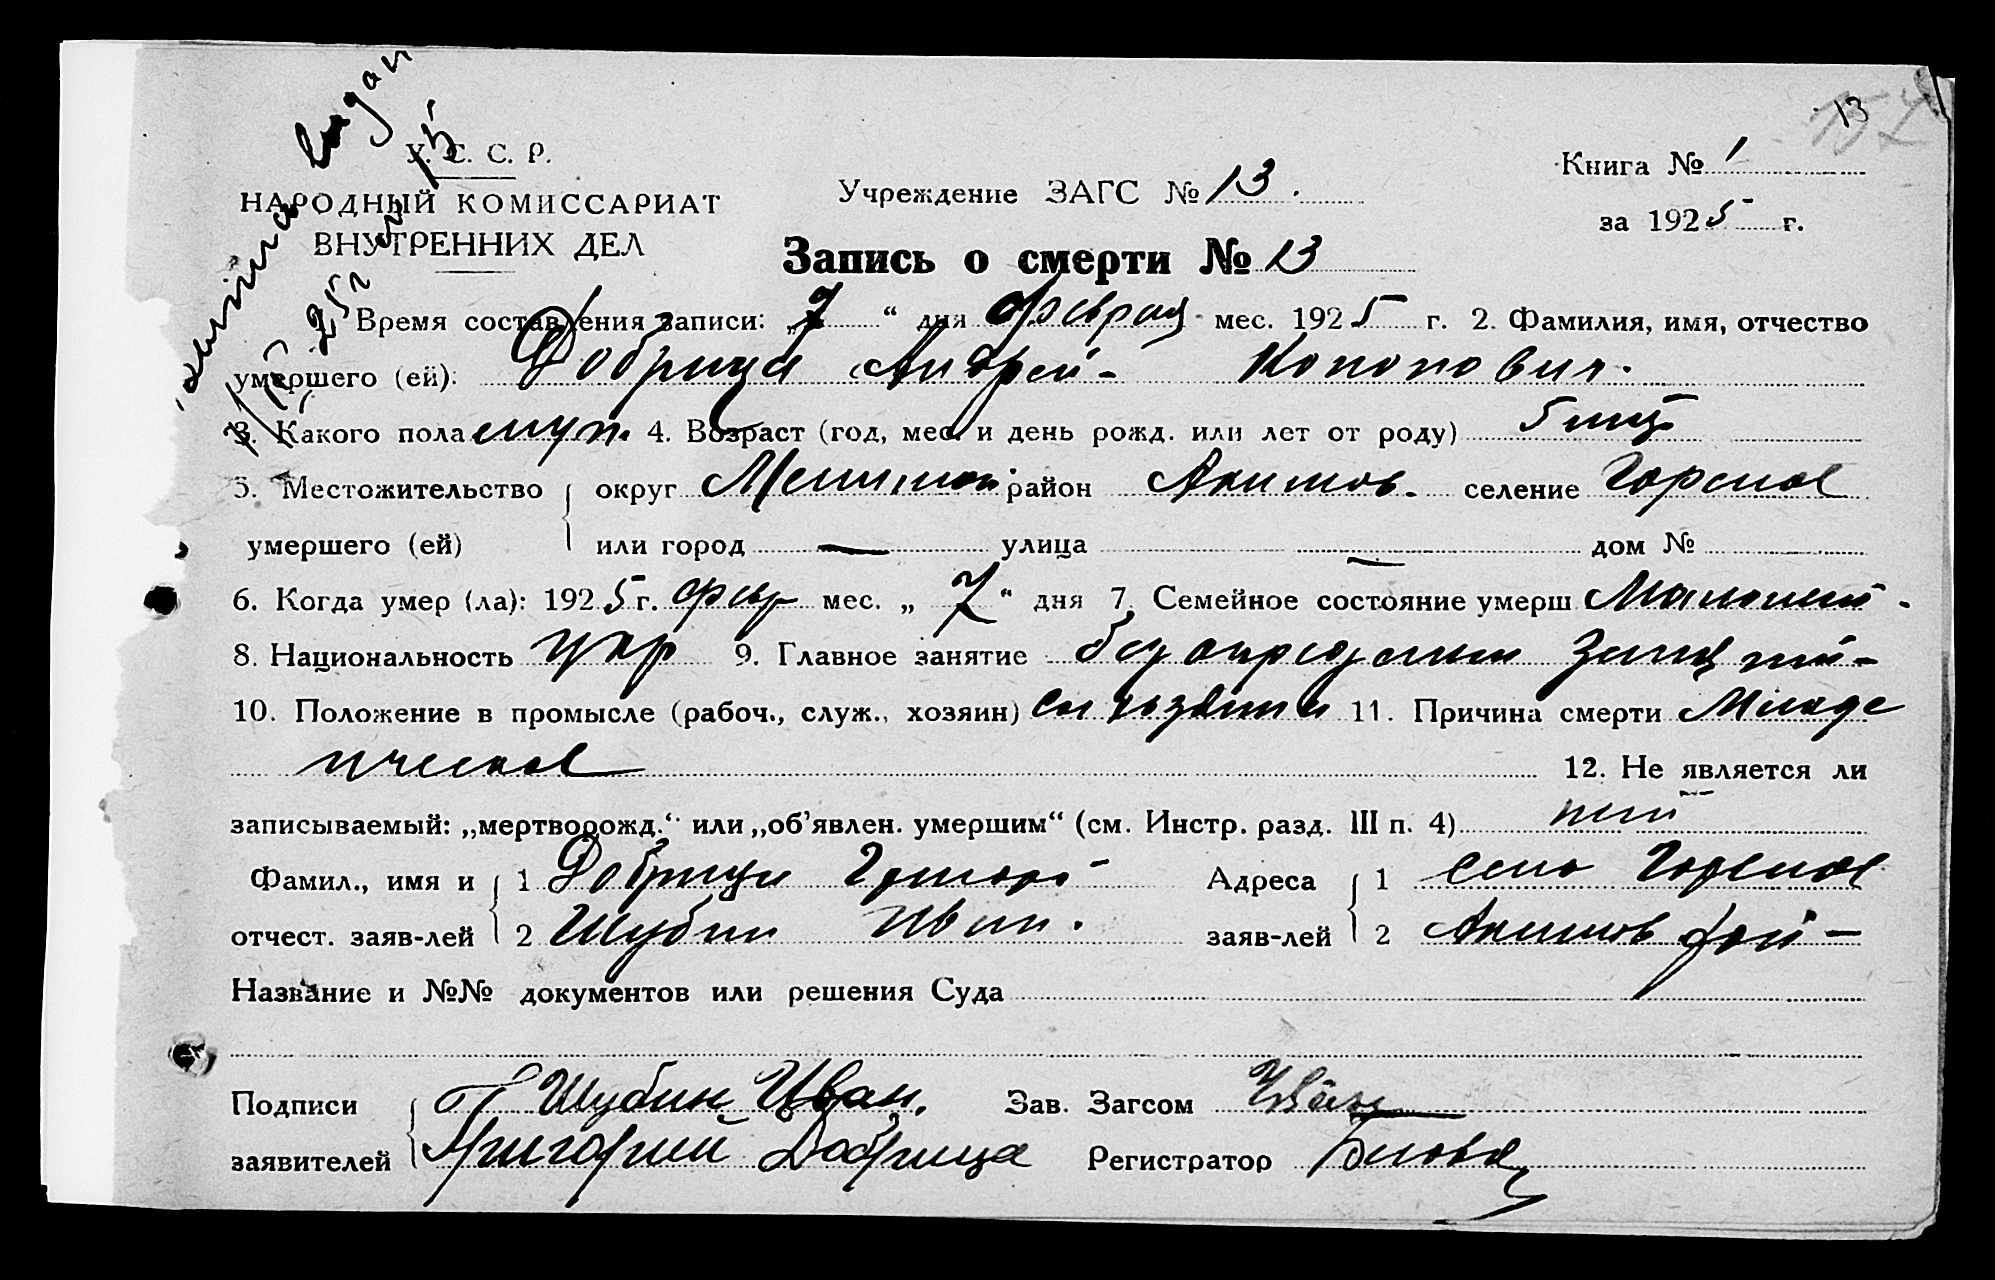 13
У. С. С. Р.
НАРОДНЫЙ КОМИССАРИАТ
ВНУТРЕННИХ ДЕЛ
Учреждение ЗАГС № 13.
Книга № 1
за 1925 г.
Запись о смерти № 13
Время составления записи: „7“ дня Феврал мес. 1925 г. 2. Фамилия, имя, отчество
умершего (ей): Добрица Андрей Кононович.
3. Какого пола муж. 4. Возраст (год, мес. и день рожд. или лет от роду) 5 мц
5. Местожительство округ район Акимов. селение Горское
умершего (ей) или город — улица — дом №
6. Когда умер (ла): 1925 г. февр мес. „7“ дня 7. Семейное состояние умерш Малолет.
8. Национальность укр 9. Главное занятие
10. Положение в промысле (рабоч., служ., хозяин) сын хозяина 11. Причина смерти Младе
ническое 12. Не является ли
записываемый: „мертворожд.“ или „об'явлен. умершим“ (см. Инстр. разд. III п. 4) нет
Фамил., имя и 1 Добрица Григорий Адреса 1 село Горское
отчест. заяв-лей 2 Шубин Иван. заяв-лей 2 Акимов рай-
Название и №№ документов или решения Суда
Подписи Шубин Иван. Зав. Загсом
заявителей Григорий Добрица Регистратор